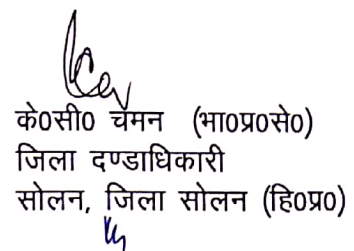 के०सी० चमन (भा०प्र०से०)
जिला दण्डाधिकारी
सोलन, जिला सोलन (हि०प्र०)